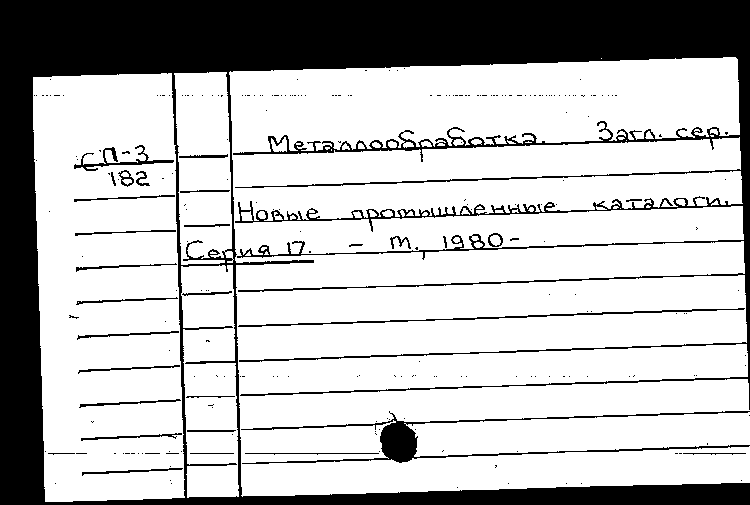 Металлообработка. Загл. сер.
СП-3
182
Новые промышленные каталоги.
Серия 17. - М., 1980-